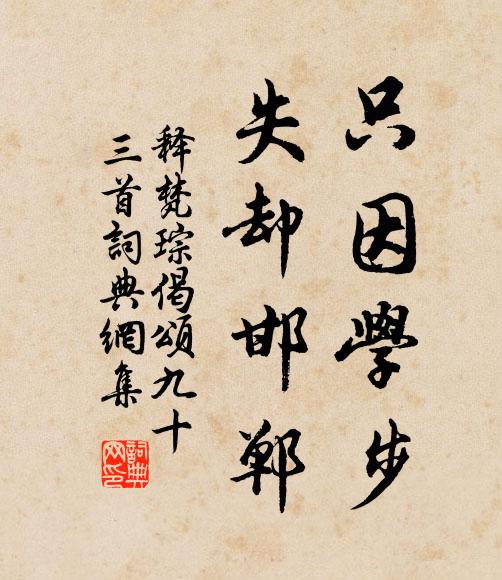 只因學步
失却邯鄲
释梵琮偈頌九十
三首詞典網集
詞典网印